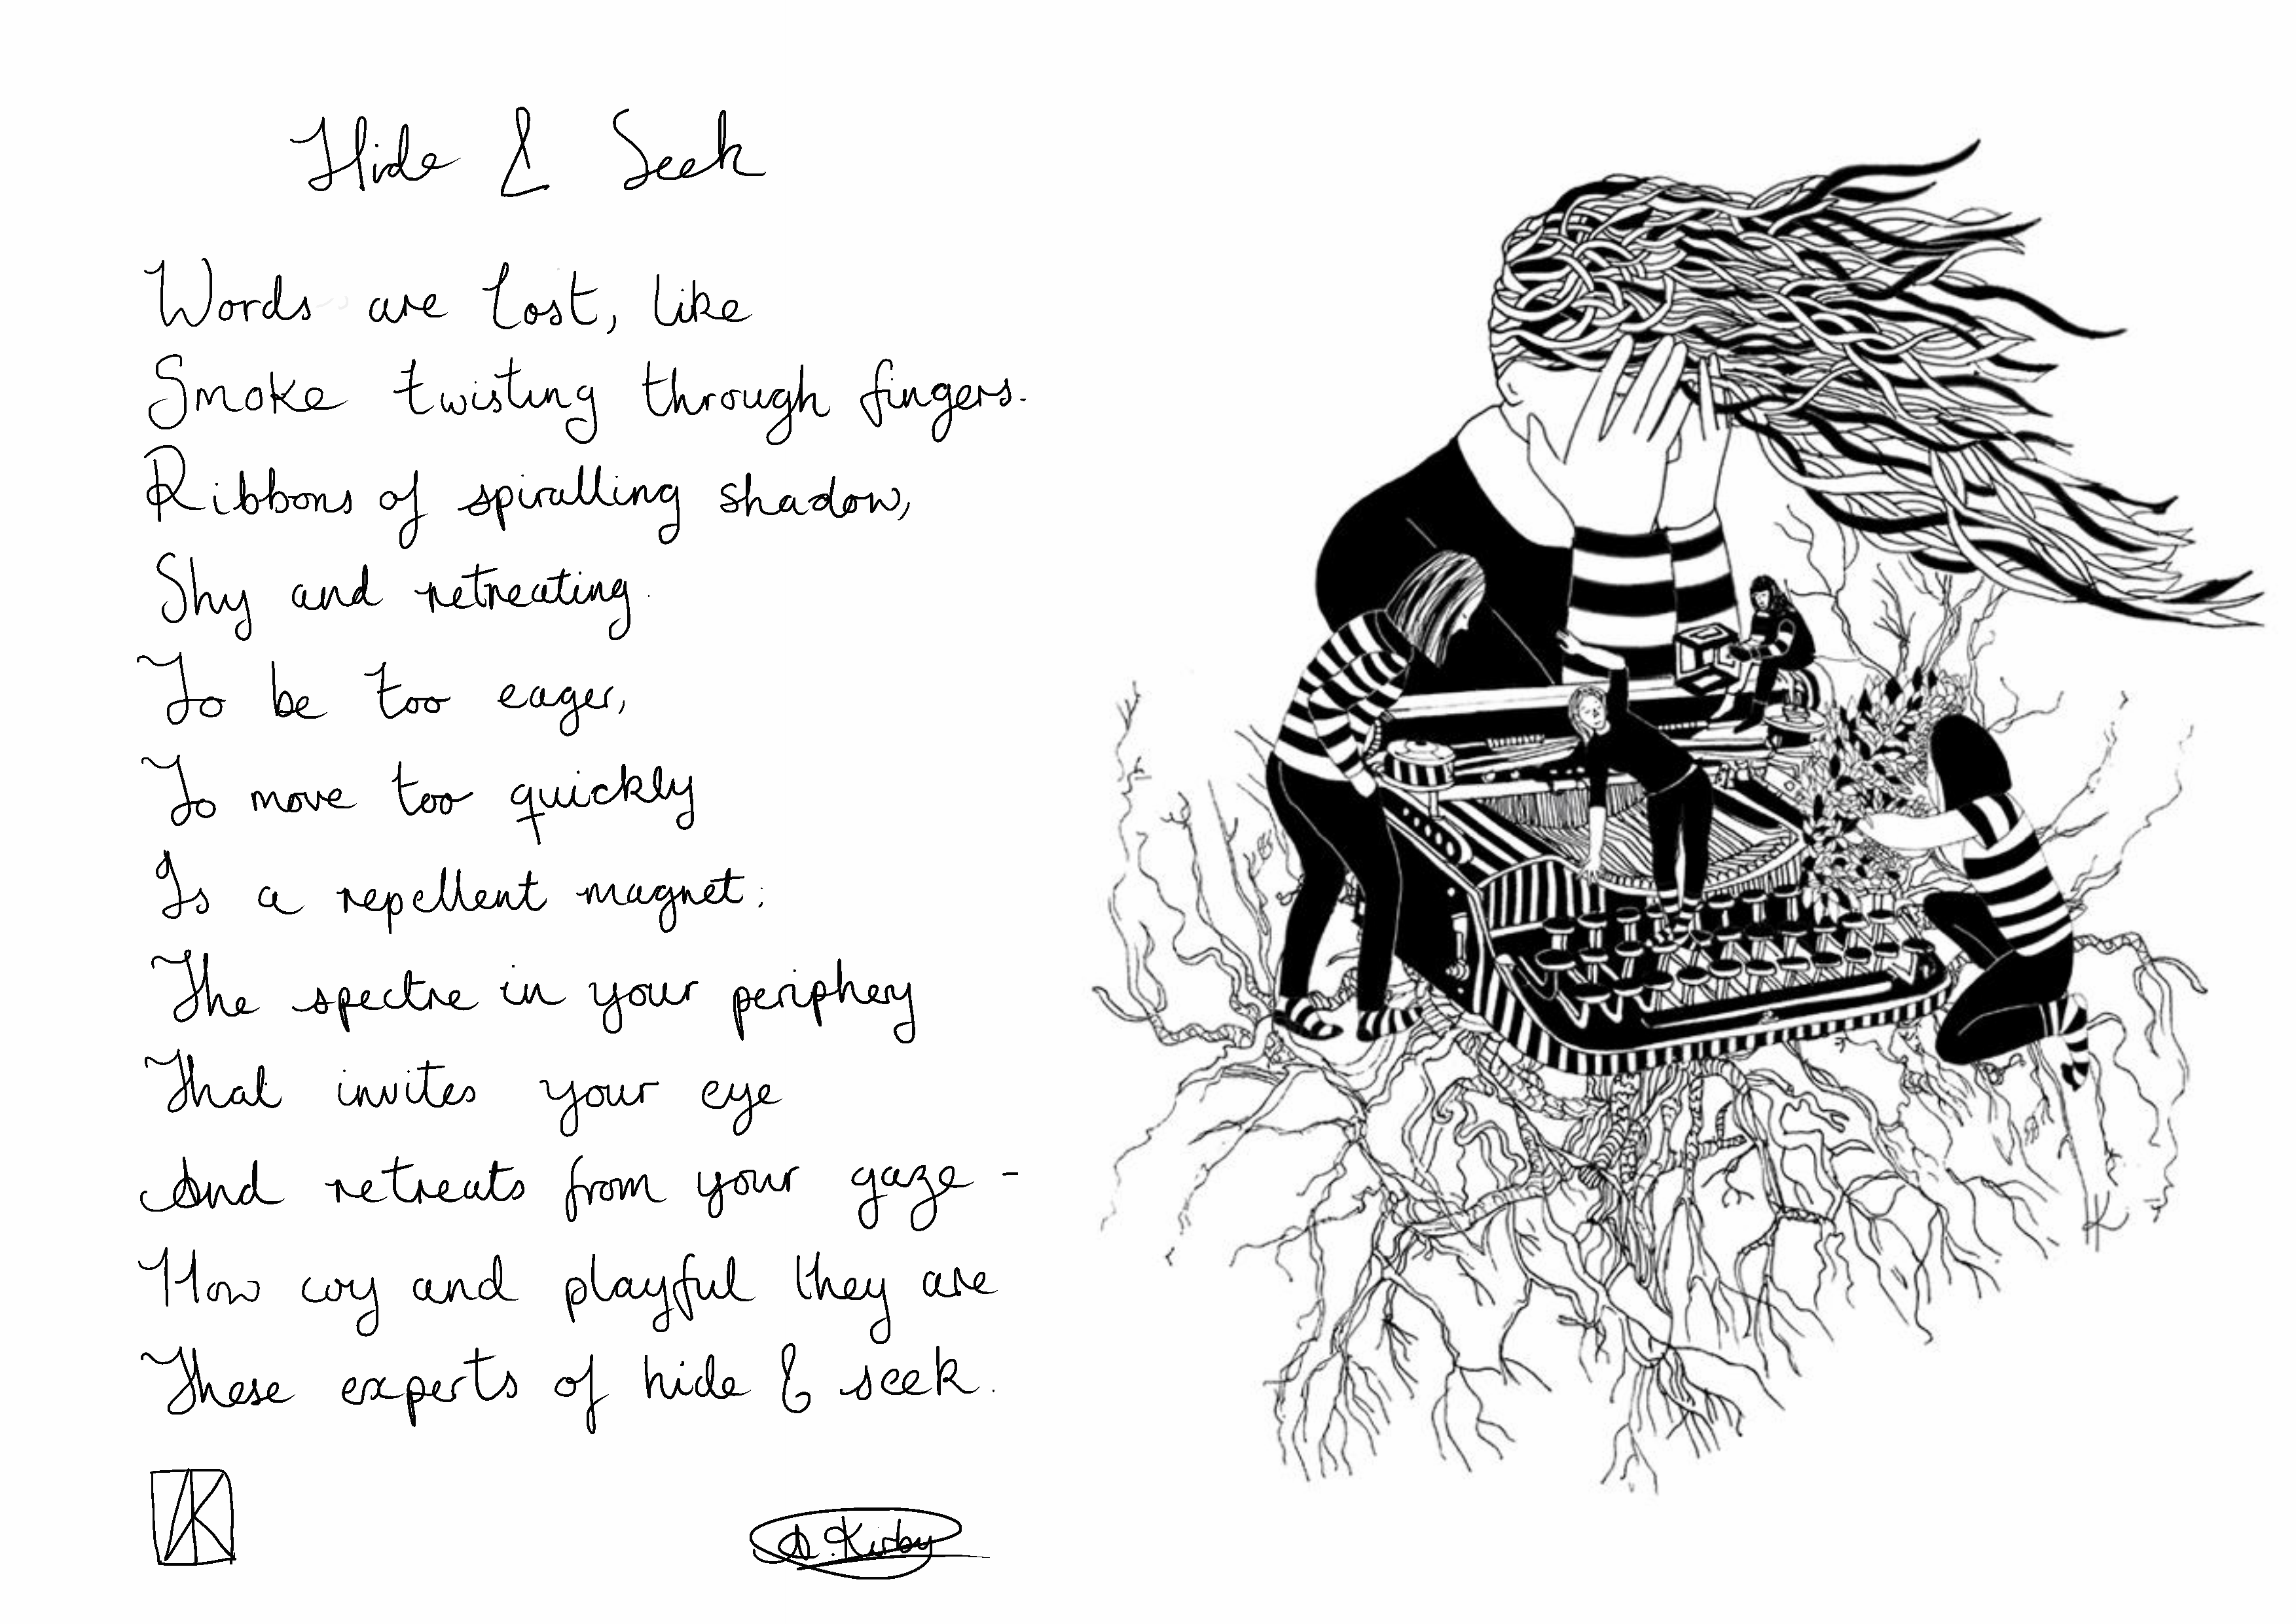 Hide & Seek
Words are lost, like
Smoke twisting through fingers.
Ribbons of spiralling shadow,
Shy and retreating.
To be too eager,
To move too quickly
Is a repellent magnet;
The spectre in your periphery
That invites your eye
And retreats from your gaze -
How coy and playful they are
These experts of hide & seek.
A. Kirby